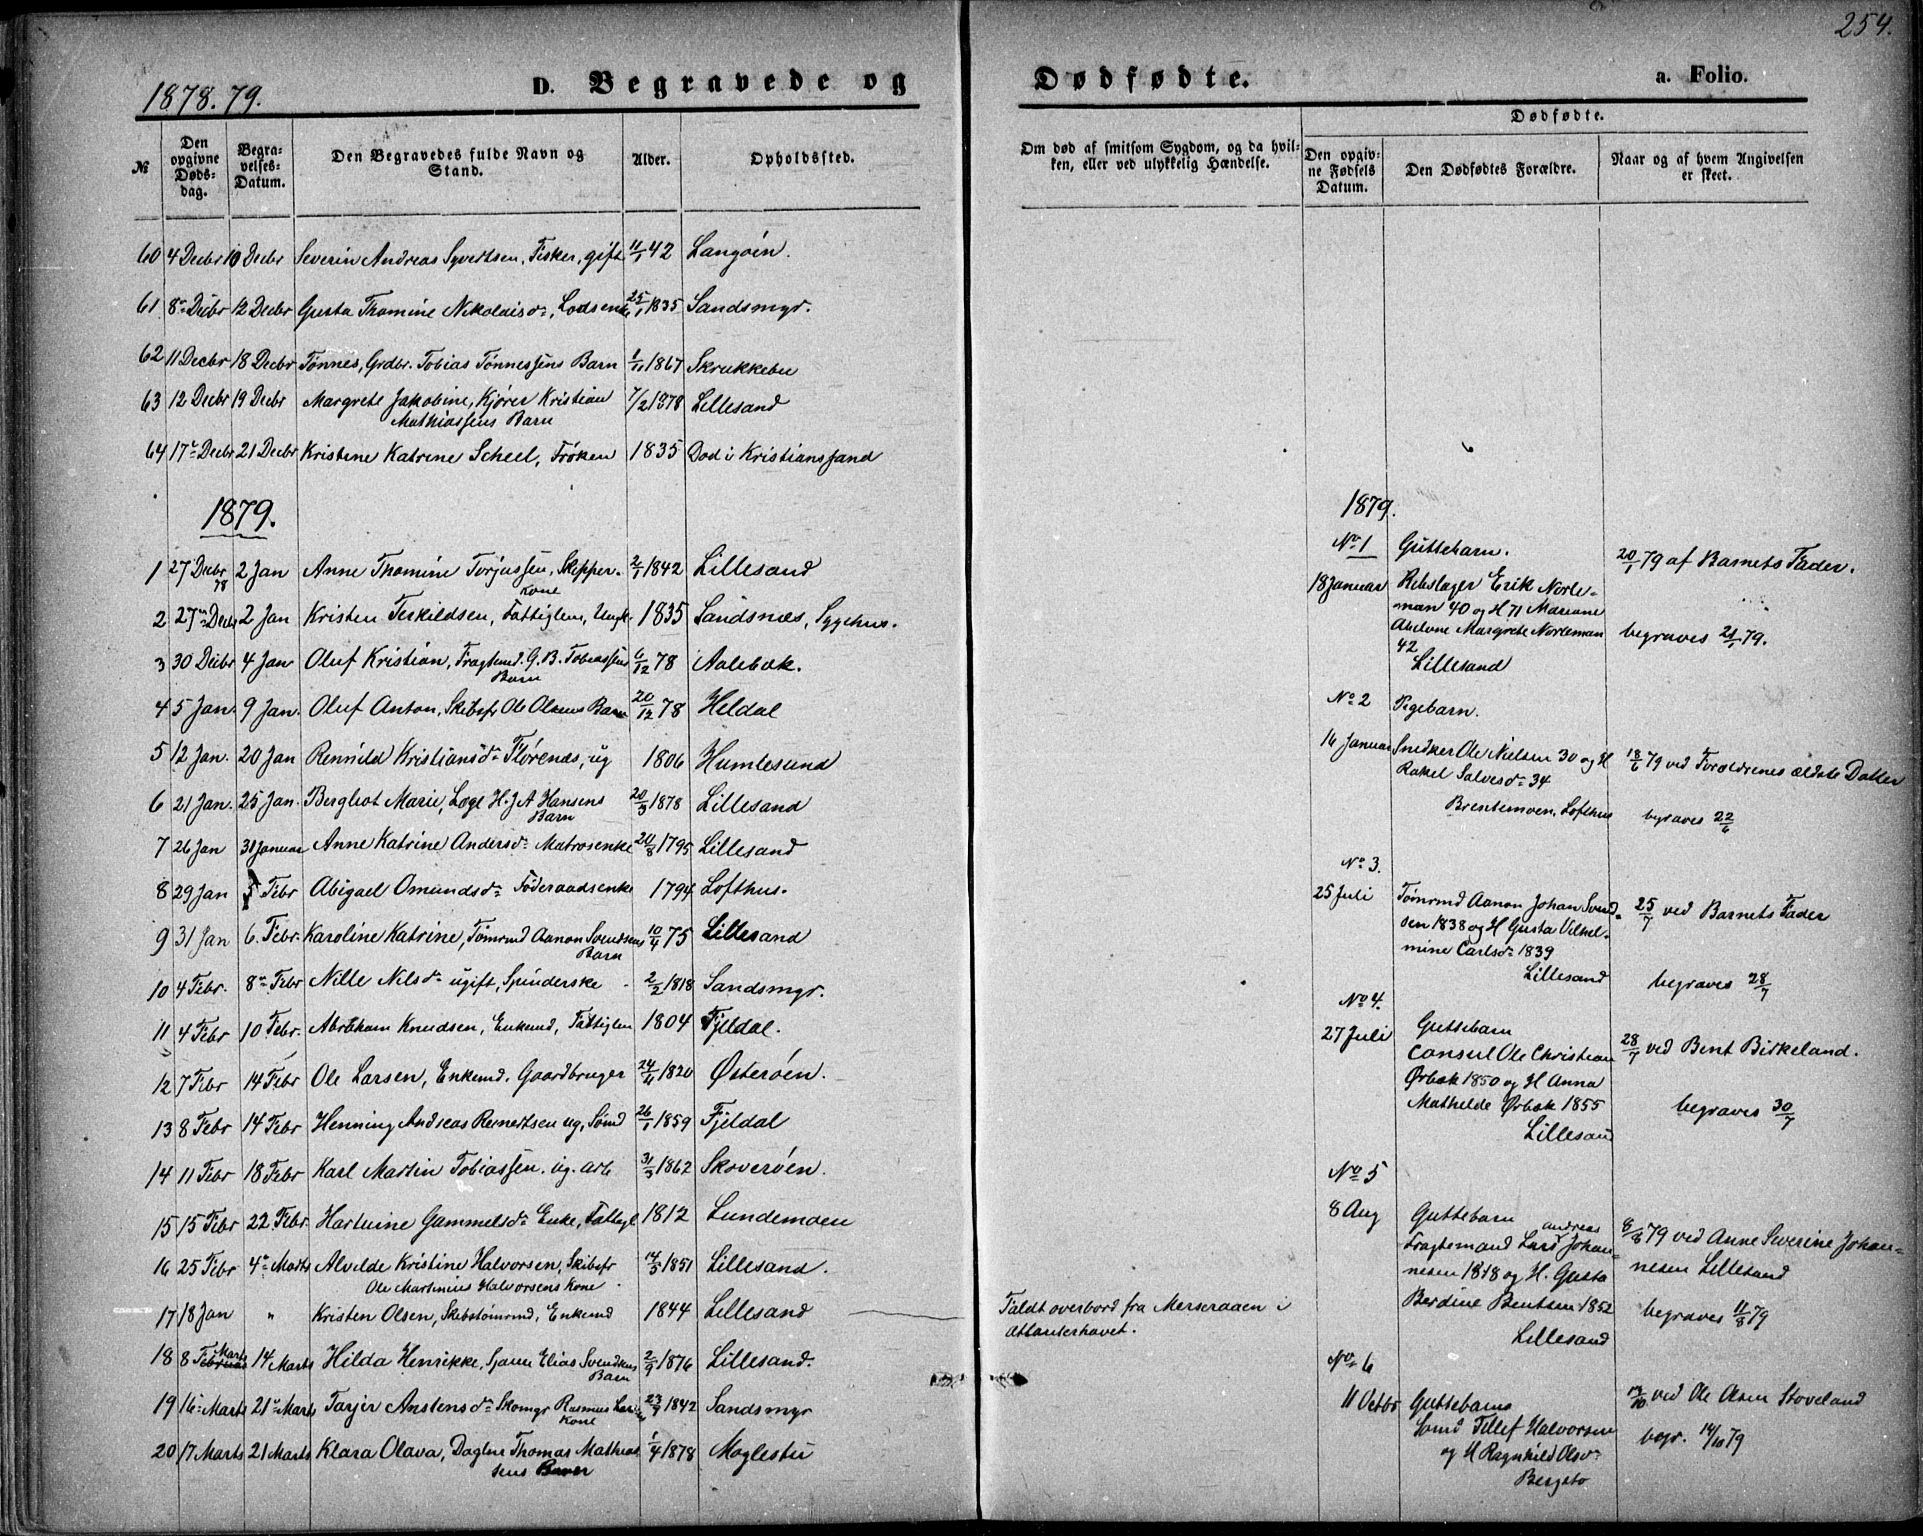 254.
1878.79.
D. Begravede og
Dødfødte.
a. Folio.
№
Den opgivne Døds-dag.
Begra-velses-Datum.
Den Begravedes fulde Navn og Stand.
Alder.
Opholdssted.
Om død af smitsom Sygdom, og da hvil-
ken, eller ved ulykkelig Hændelse.
Dødfødte.
Den opgiv-ne Fødsels Datum.
Den Dødfødtes Forældre.
Naar og af hvem Angivelsen er skeet.
60 4 Decbr 10 Decbr Severin Andreas Syvertsen, Fisker, gift 11/1 42 Langøen.
61 8de Decbr 12 Decbr Gusta Thomine Nikolaisdr, Lodsenke 25/1 1835 Sandsmyr.
62 11 Decbr 18 Decbr Tønnes, Grdbr. Tobias Tønnessens Barn 1867 Skrukkebu
63 12 Decbr 19 Decbr Margrete Jakobine, Kjører Kristian 7/2 1878 Lillesand
Mathiassens Barn
64 17de Decbr 21 Decbr Kristine Katrine Scheel, Frøken 1835 Død i Kristianssand
1879.
1 27 Decbr 78 2 Jan Anne Thomine Torjussen, Skipper- 2/1 1842 Lillesand
Kone
2 27de Decbr 2 Jan Kristen Terkildsen, Fattiglem, Ungk. 1835 Sandsnæs, Sygehus.
3 30 Decbr 4 Jan Oluf Kristian, Fragtemd. G. B. Tobiassens 6/12 78 Aalebæk.
Barn
4 5 Jan. 9 Jan. Oluf Anton, Skibsfr Ole Olsens Barn 20/12 78 Heldal
5 12 Jan. 20 Jan Rennild Kristiansdr Flørenæs, ug 1806 Humlesund
6 21 Jan. 25 Jan. Bergliot Marie, Læge H. J A Hansens 20/3 1878 Lillesand
Barn
7 26 Jan 31 Januar Anne Katrine Andersdr Matrosenke 20/8 1795 Lillesand
8 29 Jan 5 Febr Abigael Omundsdr Føderaadsenke 1794 Lofthus.
9 31 Jan 6. Febr. Karoline Katrine, Tømrmd Aanon Svendsens 10/4 75 Lillesand
Barn
10 4 Febr. 8de Febr Nille Nilsdr ugift, Spinderske 2/2 1818 Sandsmyr.
11 4 Febr 10 Febr. Abraham Knudsen, Enkemd, Fattiglem 1804 Fjeldal.
12 7 Febr 14 Febr Ole Larsen, Enkemd. Gaardbruger 24/4 1820 Østerøen.
13 8 Febr 14 Febr Henning Andreas Reinertsen ug, Sømd 26/1 1859 Fjeldal
14 11 Febr 18 Febr Karl Martin Tobiassen. ug. arb 31/3 1862 Skoverøen.
15 15 Febr 22 Febr. Hartvine Gammelsdr Enke, Fattigl 1812 Lundemoen
16 25 Febr 4de Marts Alvilde Kristine Halvorsen, Skibsfr 14/5 1851 Lillesand.
Ole Martinius Halvorsens Kone
17 18 Jan " Kristen Olsen, Skibstømrmd, Enkemd 1844 Lillesand
Faldt overbord fra Merseraaen i
Atlanterhavet.
18 8 Februar Marts 14 Marts Hilda Henrikke, Sjømm Elias Svendsens 2/9 1876 Lillesand.
Barn
19 16de Marts 21de Marts Tarjer Anstensdr Skomgr Rasmus 23/7 1842 Sandsmyr
Kone
20 17 Marts 21 Marts Klara Olava, Daglnr Thomas Mathias- 1/4 1878 Moglestu
sens Barn
1879.
No 1 Guttebarn. 20/1 79 af Barnets Fader.
18 Januar Rebslager Erik Norle-
man 40 og H 71 Mariane
Abelone Margrete Norleman begraves 21/1 79.
42
Lillesand
No 2 Pigebarn.
16 Januar Snedker Ole Nielsen 30 og H 18/6 79 ved Forældrenes ældste Datter
Rakel Salvesdr 34
Brentemoen, Lofthus begraves 22/6
No 3.
25 Juli Tømrmd Aanon Johan Svend- 25/7 ved Barnets Fader
sen 1838 og H Gusta Vilhel-
mine Carlsdr 1839
Lillesand begraves 28/7
No 4.
27 Juli Guttebarn 28/7 ved Bent Birkeland.
Consul Ole Christian
Ørbæk 1850 og H Anna
Mathilde Ørbæk 1855 begraves 30/7
Lillesand
No 5
8 Aug Guttebarn 8/8 79 ved Anne Severine Johan-
Andreas
Fragtemand Lars Johan- nesen Lillesand
nesen 1848 og H. Gusta
Berdine Bentsen 1852 begraves 11/8 79
Lillesand
No 6
11 Octbr Guttebarn ved Ole Olsen Stoveland
Sømd Tellef Halvorsen begr. 14/10 79
og H Ragnhild Olsdr
Bergstø